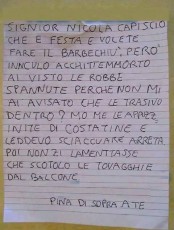 SIGNIOR NICOLA CAPISCIO
CHE E FESTA E VOLETE
FARE IL BARBECHIU', PERO'
INNCULO A CCHITTEMMORTO
AI VISTO LE ROBBE
SPANNUTE PERCHE NON MI
AI AVISATO CHE LE TRASIVO
DENTRO? MO ME LE APPEZZ
INITE DI COSTATINE E
LEDDEVO SCIACQUARE ARRETA
POI NON ZI LAMENTIASSE
CHE SCOTOLO LE TOVAGGHIE
DAL BALCONE
PINA DI SOPRA A TE